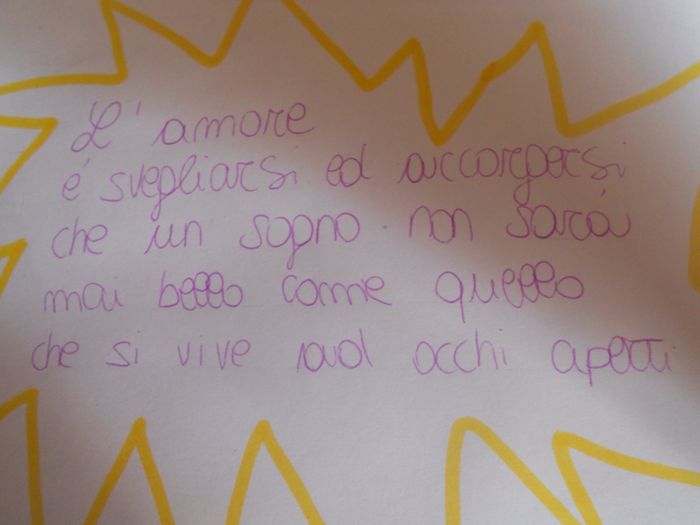 L'amore
é svegliarsi ed accorgersi
che un sogno non sarà
mai bello come quello
che si vive ad occhi aperti